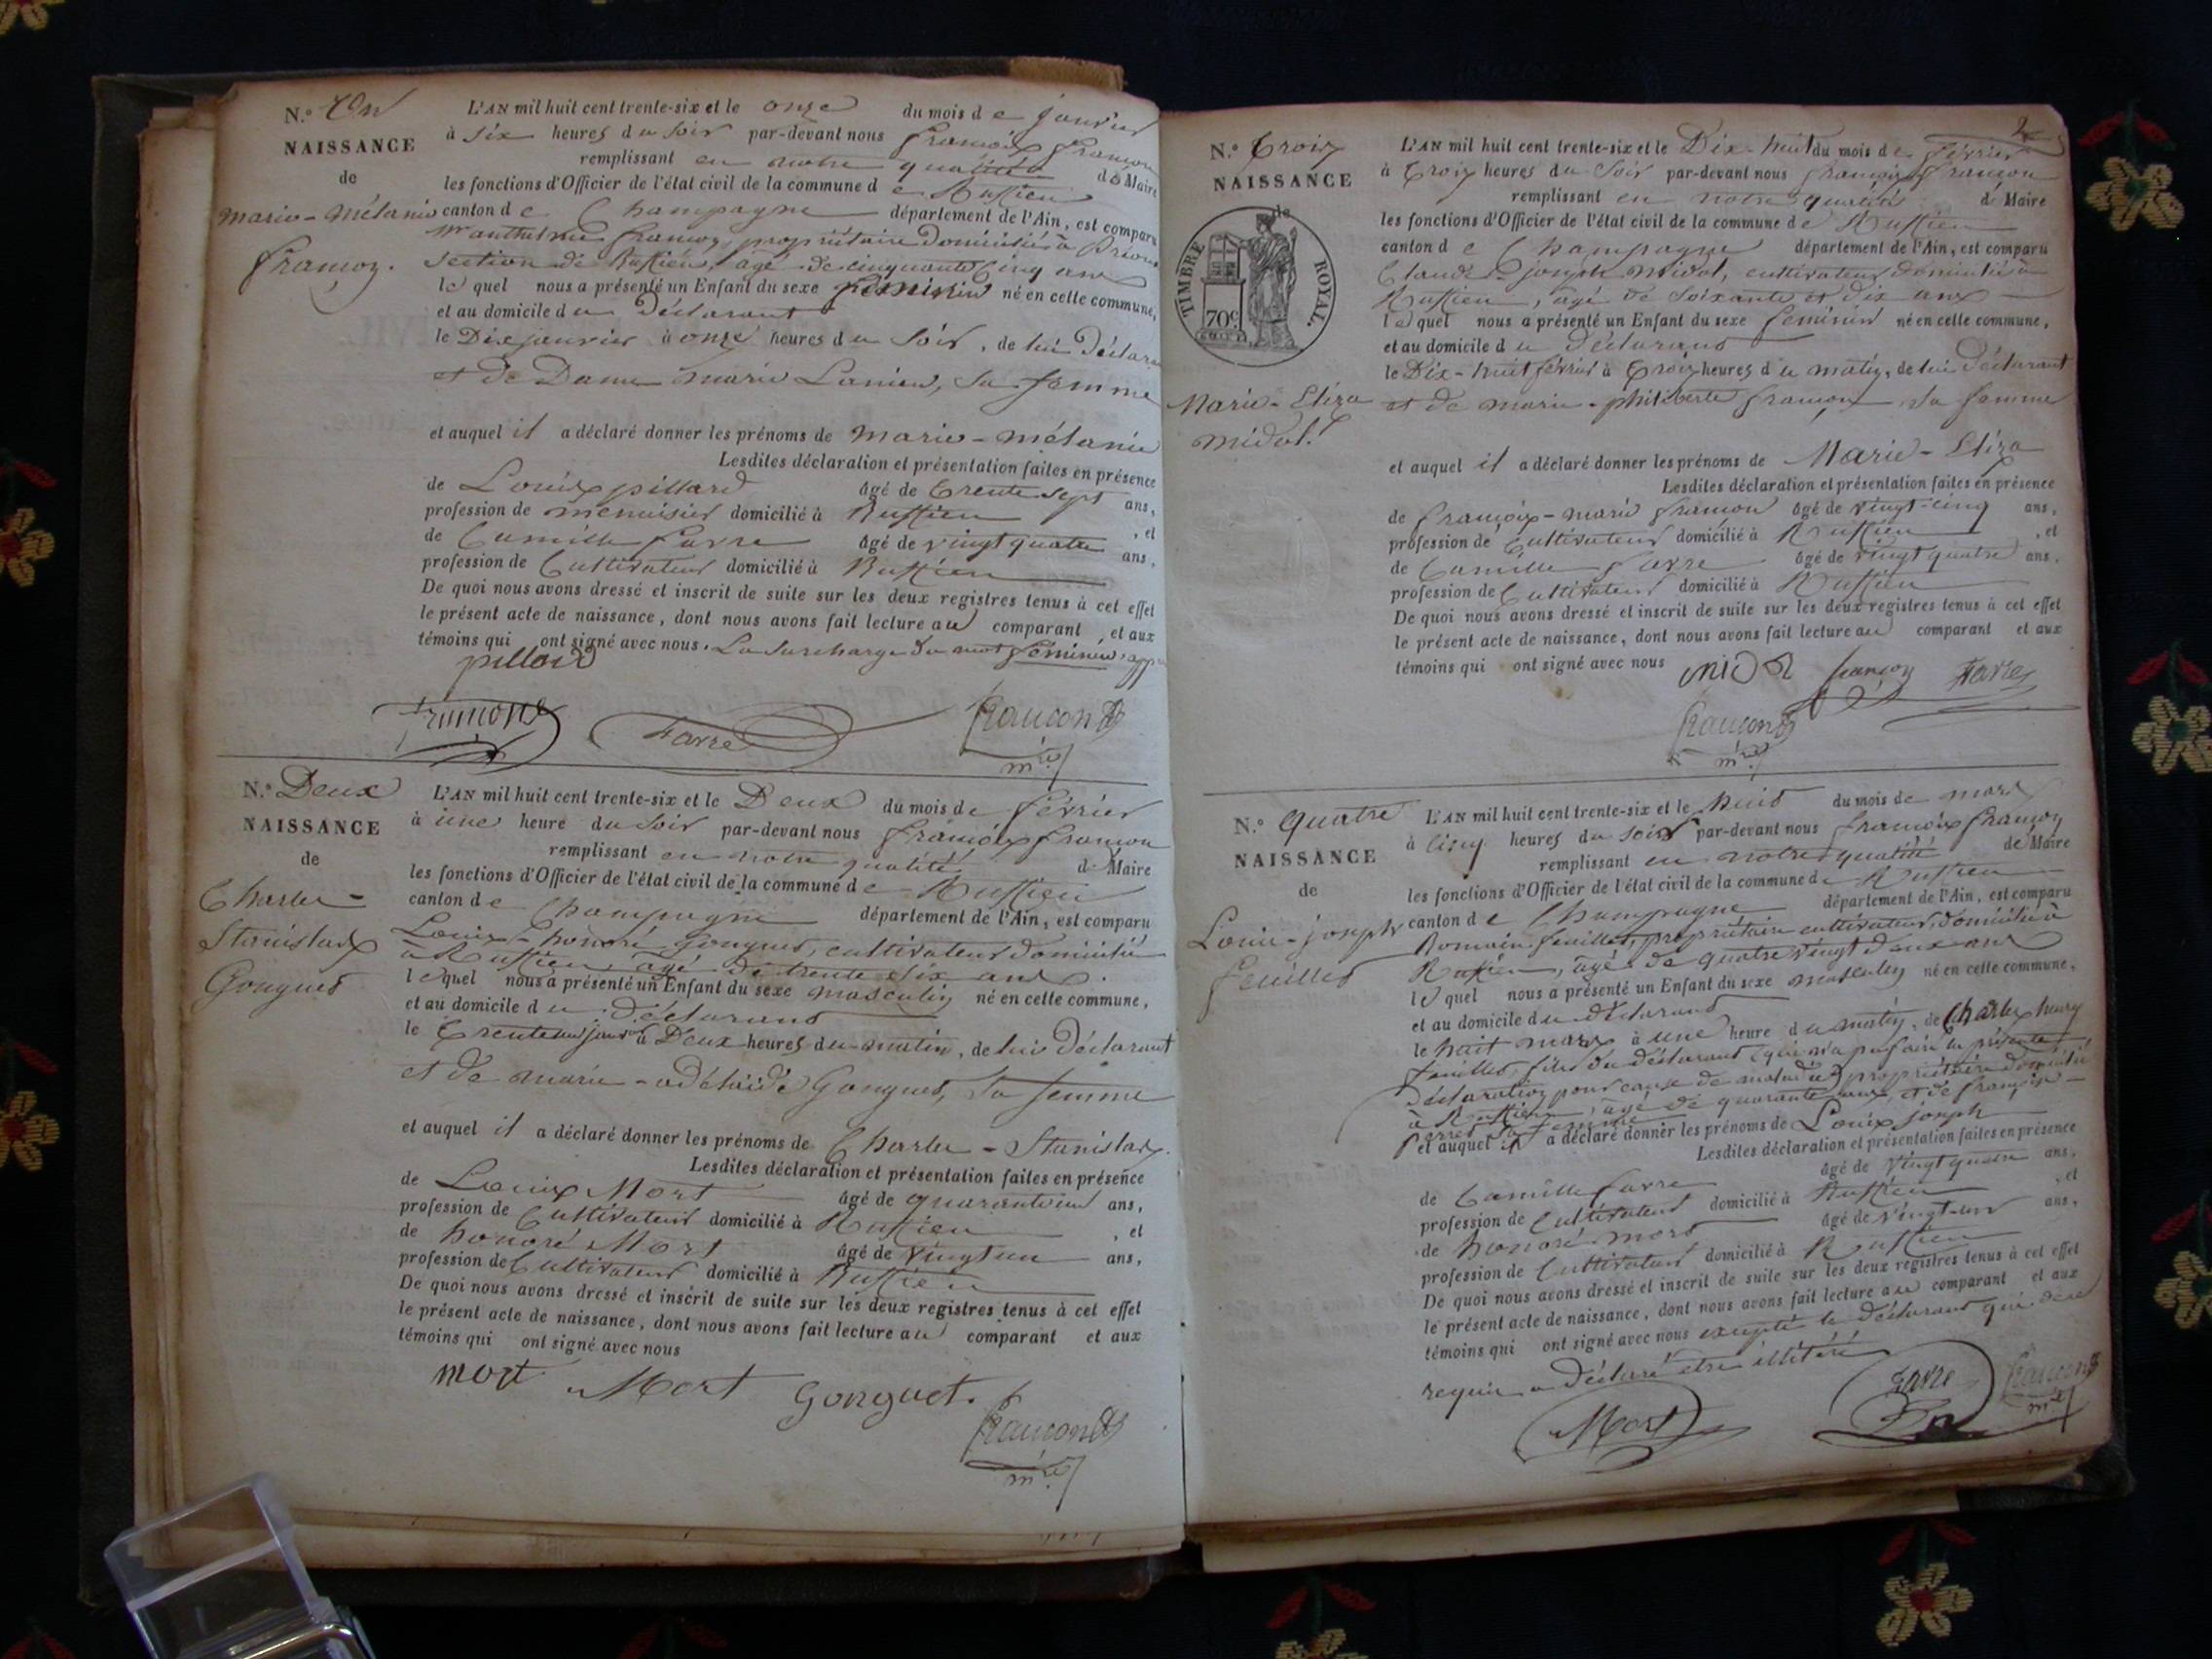 N.° Un
NAISSANCE
de
Marie-Mélanie
françon.
L'AN mil huit cent trente-six et le onze du mois de janvier
à six heures du soir par-devant nous françois françon
remplissant en notre qualité de Maire
les fonctions d'Officier de l'état civil de la commune de Ruffieu
canton de Champagne département de l'Ain, est comparu
françon, propriétaire Domicilié à
section de Ruffieu, agé de cinquante cinq ans
lequel nous a présenté un Enfant du sexe féminin né en cette commune,
et au domicile du Déclarant
le Dix janvier à onze heures du soir, de lui Déclarant
et de Dame marie Lanieu, sa femme
et auquel il a déclaré donner les prénoms de marie-mélanie
Lesdites déclaration et présentation faites en présence
de Louis pillard âgé de trente sept ans,
profession de menuisier domicilié à Ruffieu , et
de Camille favre âgé de vingt quatre ans,
profession de Cultivateur domicilié à Ruffieu
De quoi nous avons dressé et inscrit de suite sur les deux registres tenus à cet effet
le présent acte de naissance, dont nous avons fait lecture au comparant , et aux
témoins qui ont signé avec nous. La surcharge du mot féminin, app
pillard
Favre françon
m.re
N.° Deux
NAISSANCE
de
Charles-
Stanislas
Gonguet
L'AN mil huit cent trente-six et le Deux du mois de février
à une heure du soir par-devant nous françois françon
remplissant en notre qualité de Maire
les fonctions d'Officier de l'état civil de la commune de Ruffieu
canton de Champagne département de l'Ain, est comparu
Louis-honoré Gonguet, cultivateur domicilié
à Ruffieu, agé de trente six ans.
lequel nous a présenté un Enfant du sexe masculin né en cette commune,
et au domicile du Déclarant
le trente un janvier à Deux heures du matin, de lui Déclarant
et de marie-adélaïde Gonguet, sa femme
et auquel il a déclaré donner les prénoms de Charles-Stanislas.
Lesdites déclaration et présentation faites en présence
de Louis Mort âgé de quarante un ans,
profession de Cultivateur domicilié à Ruffieu , et
de honoré Mort âgé de vingt un ans,
profession de Cultivateur domicilié à Ruffieu
De quoi nous avons dressé et inscrit de suite sur les deux registres tenus à cet effet
le présent acte de naissance, dont nous avons fait lecture au comparant et aux
témoins qui ont signé avec nous
mort Mort Gonguet.
françon
m.re
2
N.° Trois
NAISSANCE
de
TIMBRE ROYAL.
70c
Marie-Eliza
midol.
L'AN mil huit cent trente-six et le Dix-huit du mois de février
à Trois heures du soir par-devant nous françois françon
remplissant en notre qualité de Maire
les fonctions d'Officier de l'état civil de la commune de Ruffieu
canton de Champagne département de l'Ain, est comparu
Claude joseph midol, cultivateur domicilié à
Ruffieu, agé de soixante et dix ans
lequel nous a présenté un Enfant du sexe féminin né en cette commune,
et au domicile du Déclarant
le Dix-huit février à Trois heures du matin, de lui Déclarant
et de marie-philiberte françon sa femme
et auquel il a déclaré donner les prénoms de Marie-Eliza
Lesdites déclaration et présentation faites en présence
de françois-marie françon âgé de vingt-cinq ans,
profession de Cultivateur domicilié à Ruffieu , et
de Camille favre âgé de vingt quatre ans,
profession de Cultivateur domicilié à Ruffieu
De quoi nous avons dressé et inscrit de suite sur les deux registres tenus à cet effet
le présent acte de naissance, dont nous avons fait lecture au comparant et aux
témoins qui ont signé avec nous midol françon Favre
françon
m.re
N.° quatre
NAISSANCE
de
Louis-joseph
feuillet
L'AN mil huit cent trente-six et le huit du mois de mars
à cinq heures du soir par-devant nous françois françon
remplissant en notre qualité de Maire
les fonctions d'Officier de l'état civil de la commune de Ruffieu
canton de Champagne département de l'Ain, est comparu
Romain feuillet, propriétaire cultivateur, domicilié à
Ruffieu, agé de quatre vingt deux ans
lequel nous a présenté un Enfant du sexe masculin né en cette commune,
et au domicile du déclarant
le huit mars à une heure du matin, de Charles henry
feuillet, fils du déclarant (qui n'a pu faire la présente
Déclaration pour cause de maladie) propriétaire domicilié
à Ruffieu, agé de quarante ans, et de françoise
perret sa femme
et auquel il a déclaré donner les prénoms de Louis joseph
Lesdites déclaration et présentation faites en présence
de Camille favre âgé de vingt quatre ans,
profession de Cultivateur domicilié à Ruffieu , et
de honoré mort âgé de vingt-un ans,
profession de Cultivateur domicilié à Ruffieu
De quoi nous avons dressé et inscrit de suite sur les deux registres tenus à cet effet
le présent acte de naissance, dont nous avons fait lecture au comparant et aux
témoins qui ont signé avec nous excepté le déclarant qui de ce
requis a déclaré être illitéré
Mort Favre françon
m.re